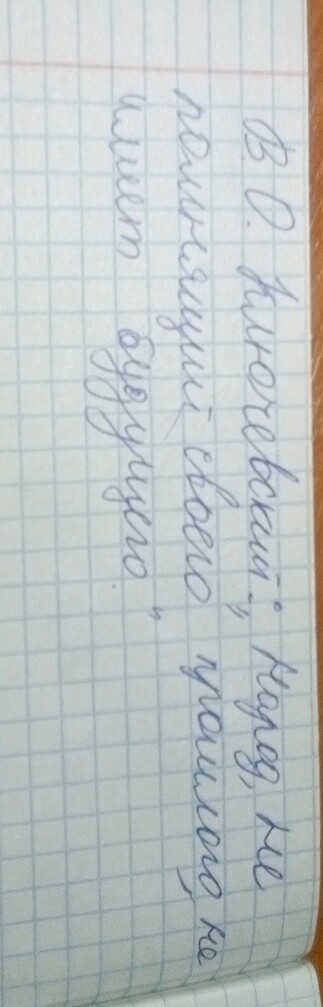 В. О. Ключевский: „Народ, не
помнящий своего прошлого, не
имеет будущего."